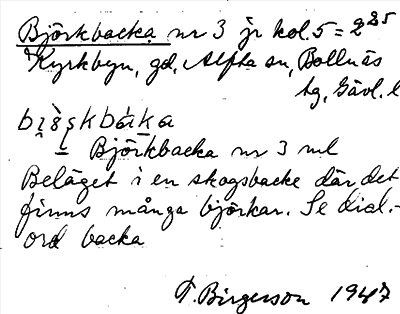 Björkbacka nr 3 jr kol. 5 = 2²⁸⁵
Kyrkbyn, gd, Alfta sn, Bollnäs
tg, Gävl. l
Björkbacka nr 3 ml
Beläget i en skogsbacke där det
finns många björkar. Se dial.-
ord backa
T. Birgerson 1947